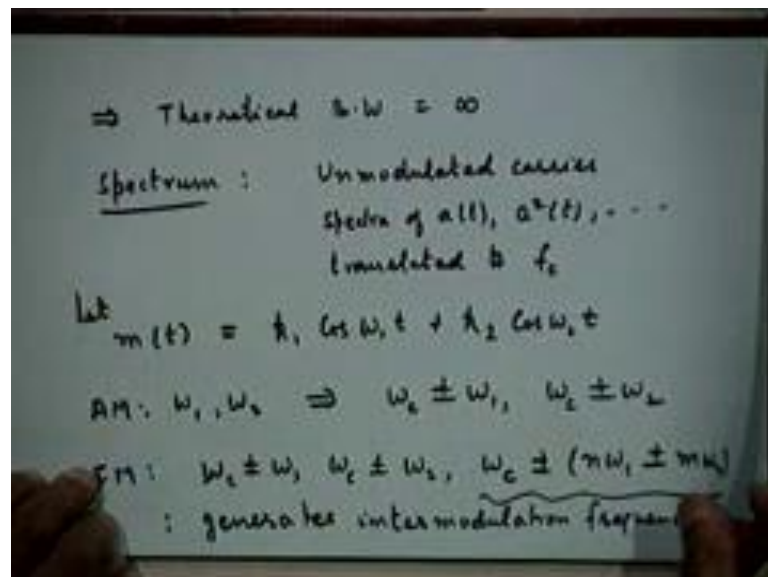 ⇒ Theoretical B.W = ∞
Spectrum : Unmodulated carrier
Spectra of a(t), a²(t), . . .
translated to f_c
Let
m(t) = k₁ Cos ω₁t + k₂ Cos ω₂t
AM: ω₁, ω₂ ⇒ ω_c ± ω₁, ω_c ± ω₂
FM: ω_c ± ω₁ ω_c ± ω₂, ω_c ± (nω₁ ± mω₂)
: generates intermodulation